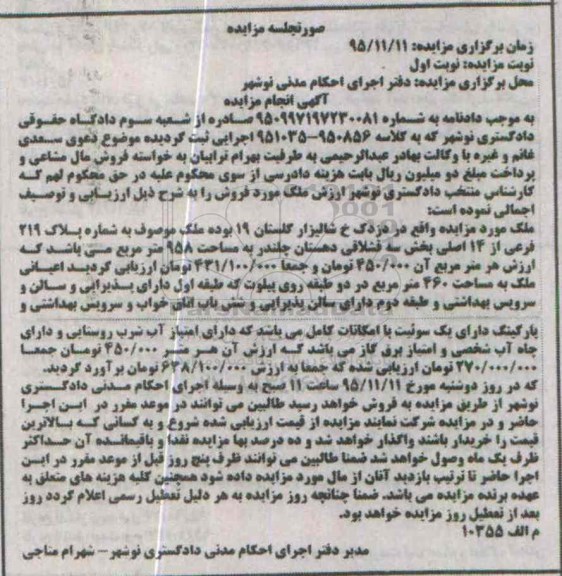 صورتجلسه مزایده
زمان برگزاری مزایده: ۹۵/۱۱/۱۱
نوبت مزایده: نوبت اول
محل برگزاری مزایده: دفتر اجرای احکام مدنی نوشهر
آگهی انجام مزایده
به موجب دادنامه به شماره ۹۵۰۹۹۷۱۹۷۲۳۰۰۸۱ صادره از شعبه سوم دادگاه حقوقی
دادگستری نوشهر که به کلاسه ۹۵۰۸۵۶-۹۵۱۰۳۵ اجرایی ثبت گردیده موضوع دعوی سعدی
غانم و غیره با وکالت بهادر عبدالرحیمی به طرفیت بهرام ترابیان به خواسته فروش مال مشاعی و
پرداخت مبلغ دو میلیون ریال بابت هزینه دادرسی از سوی محکوم علیه در حق محکوم لهم که
کارشناس منتخب دادگستری نوشهر ارزش ملک مورد فروش را به شرح ذیل ارزیابی و توصیف
اجمالی نموده است:
ملک مورد مزایده واقع در مزدک خ شالیزار گلستان ۱۹ بوده ملک موصوف به شماره پلاک ۲۱۹
فرعی از ۱۴ اصلی بخش سه قشلاقی دهستان چلندر به مساحت ۹۵۸ متر مربع می باشد که
ارزش هر متر مربع آن ۴۵۰/۰۰۰ تومان و جمعا ۴۳۱/۱۰۰/۰۰۰ تومان ارزیابی گردید اعیانی
ملک به مساحت ۴۶۰ متر مربع در دو طبقه روی پیلوت که طبقه اول دارای پذیرایی و سالن و
سرویس بهداشتی و طبقه دوم دارای سالن پذیرایی و شش باب اتاق خواب و سرویس بهداشتی و
پارکینگ دارای یک سوئیت با امکانات کامل می باشد که دارای امتیاز آب شرب روستایی و دارای
چاه آب شخصی و امتیاز برق گاز می باشد که ارزش آن هر متر ۴۵۰/۰۰۰ تومان جمعا
۲۷۰/۰۰۰/۰۰۰ تومان ارزیابی شده که جمعا به ارزش ۶۳۸/۱۰۰/۰۰۰ تومان برآورد گردید.
که در روز دوشنبه مورخ ۹۵/۱۱/۱۱ ساعت ۱۱ صبح به وسیله اجرای احکام مدنی دادگستری
نوشهر از طریق مزایده به فروش خواهد رسید طالبین می توانند در موعد مقرر در این اجرا
حاضر و در مزایده شرکت نمایند مزایده از قیمت ارزیابی شده شروع و به کسانی که بالاترین
قیمت را خریدار باشند واگذار خواهد شد و ده درصد بها مزایده نقدا و باقیمانده آن حداکثر
ظرف یک ماه وصول خواهد شد ضمنا طالبین می توانند ظرف پنج روز قبل از موعد مقرر در این
اجرا حاضر تا ترتیب بازدید آنان از مال مورد مزایده داده شود همچنین کلیه هزینه های متعلق به
عهده برنده مزایده می باشد. ضمنا چنانچه روز مزایده به هر دلیل تعطیل رسمی اعلام گردد روز
بعد از تعطیل روز مزایده خواهد بود.
م الف ۱۰۳۵۵
مدیر دفتر اجرای احکام مدنی دادگستری نوشهر - شهرام مناجی